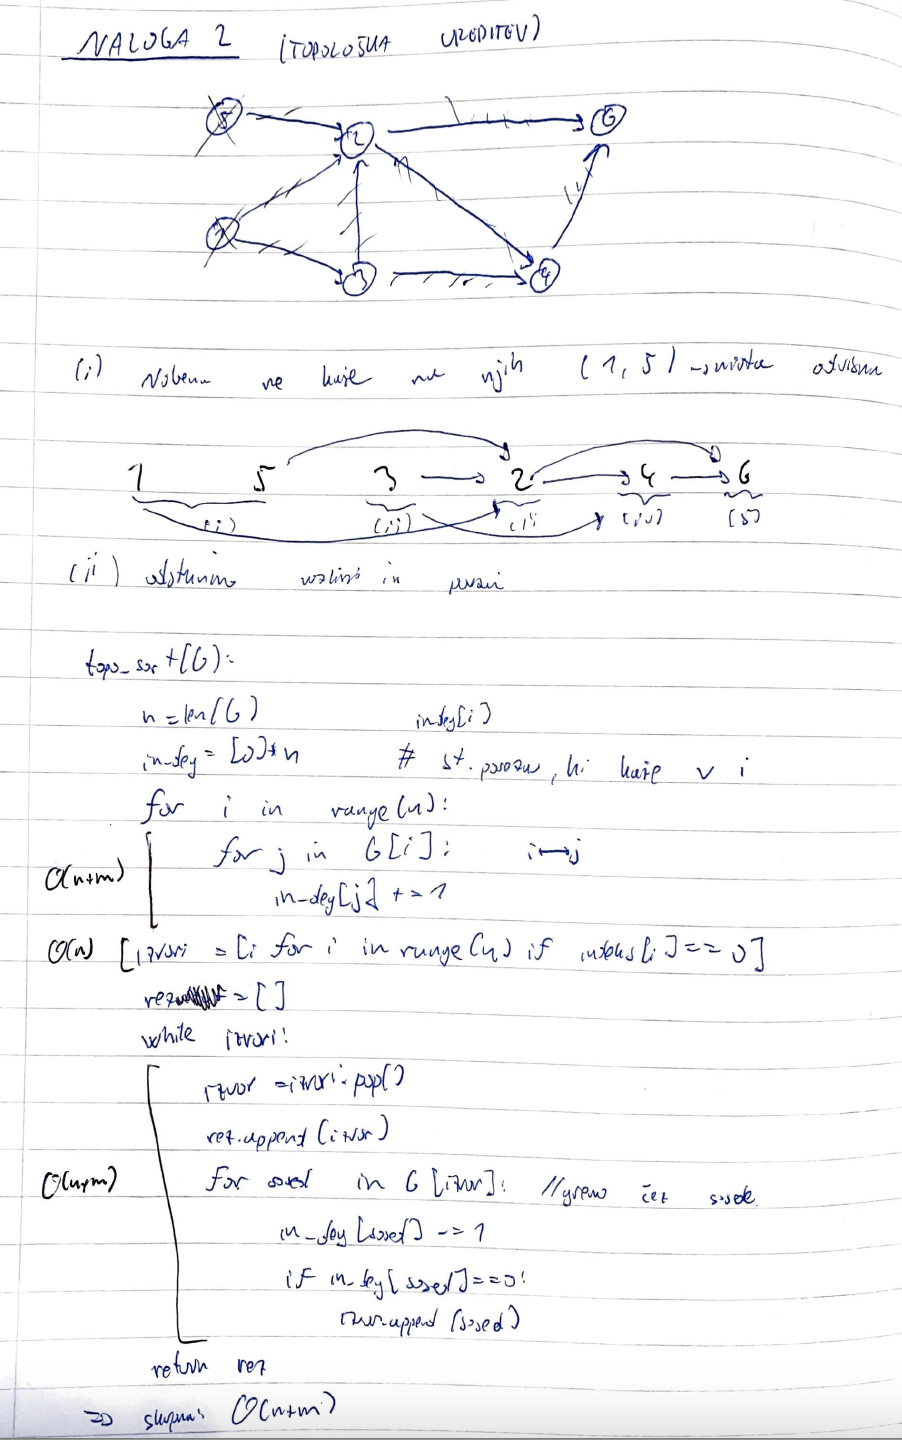 NALOGA 2 (TOPOLOŠKA UREDITEV)
5 2 6
1 3 4
(i) Nobena ne kaže na njih (1, 5) →
1 5 3 → 2 → 4 → 6
(i) (ii) (iv) (5)
(ii) odstranimo in
topo_sort(G):
n = len(G) indeg[i]
in_deg = [0]*n # št. povezav, ki kaže v i
for i in range(n):
for j in G[i]: i→j
O(n+m)
in_deg[j] += 1
O(n) [izvori = [i for i in range(n) if [i] == 0]
rez = []
while izvori:
izvor = izvori.pop()
rez.append(izvor)
O(n+m) for sosed in G[izvor]: //gremo čez sosede
in_deg[sosed] -= 1
if in_deg[sosed]==0:
izvori.append(sosed)
return rez
⇒ skupno: O(n+m)